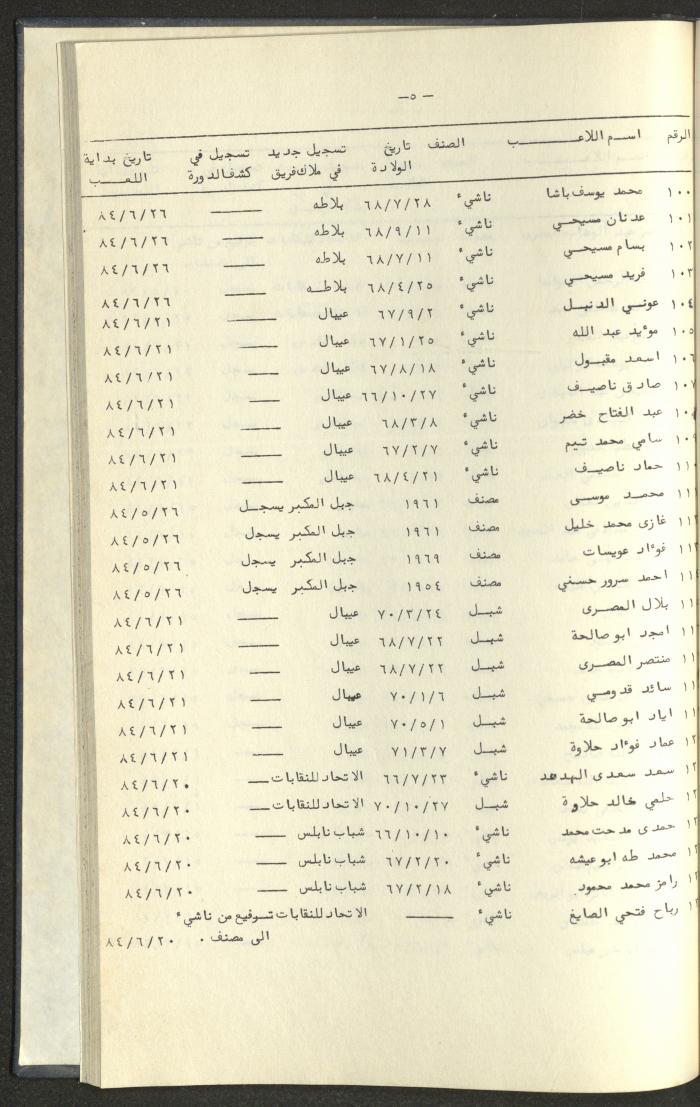 — ٥ —
الرقم اســم اللاعــــــــب الصنف تاريخ الولادة تسجيل جديد في ملاك فريق تسجيل في كشف الدورة تاريخ بداية اللعــــب
١٠٠ محمد يوسف باشا ناشيء ٦٨/٧/٢٨ بلاطه ——— ٨٤/٦/٢٦
١٠١ عدنان مسيحـي ناشيء ٦٨/٩/١١ بلاطه ——— ٨٤/٦/٢٦
١٠٢ بسام مسيحـي ناشيء ٦٨/٧/١١ بلاطه ——— ٨٤/٦/٢٦
١٠٣ فريد مسيحـي ناشيء ٦٨/٤/٢٥ بلاطـه ——— ٨٤/٦/٢٦
١٠٤ عونـي الدنبـل ناشيء ٦٧/٩/٢ عيبال ——— ٨٤/٦/٢١
١٠٥ موءيد عبد الله ناشيء ٦٧/١/٢٥ عيبال ——— ٨٤/٦/٢١
١٠٦ اسعد مقبـول ناشيء ٦٧/٨/١٨ عيبال ——— ٨٤/٦/٢١
١٠٧ صادق ناصيـف ناشيء ٦٦/١٠/٢٧ عيبال ——— ٨٤/٦/٢١
١٠ عبد الفتاح خضر ناشيء ٦٨/٣/٨ عيبال ——— ٨٤/٦/٢١
١٠ سامي محمد تـيم ناشيء ٦٧/٢/٧ عيبال ——— ٨٤/٦/٢١
١١ حماد ناصيـف ناشيء ٦٨/٤/٢١ عيبال ——— ٨٤/٦/٢١
١١ محمـد موسـى مصنف ١٩٦١ جبل المكبر يسجـل ٨٤/٥/٢٦
١١ غازى محمد خليل مصنف ١٩٦١ جبل المكبر يسجل ٨٤/٥/٢٦
١١ فوءاد عويسات مصنف ١٩٦٩ جبل المكبر يسجل ٨٤/٥/٢٦
١١ احمد سرور حسـني مصنف ١٩٥٤ جبل المكبر يسجل ٨٤/٥/٢٦
١١ بلال المصـرى شبـل ٧٠/٣/٢٤ عيبال ——— ٨٤/٦/٢١
١١ امجد ابو صالحة شبـل ٦٨/٧/٢٢ عيبال ——— ٨٤/٦/٢١
١١ منتصر المصـرى شبـل ٦٨/٧/٢٢ عيبال ——— ٨٤/٦/٢١
١١ سائد قدومـي شبـل ٧٠/١/٦ عيبال ——— ٨٤/٦/٢١
١١ اياد ابو صالحة شبـل ٧٠/٥/١ عيبال ——— ٨٤/٦/٢١
١٢ عماد فوءاد حلاوة شبـل ٧١/٣/٧ عيبال ——— ٨٤/٦/٢١
١٢ سعد سعدى الهدهد ناشيء ٦٦/٧/٢٣ الاتحاد للنقابات —— ٨٤/٦/٢٠
١٢ حلمي خالد حلاوة شبـل ٧٠/١٠/٢٧ الاتحاد للنقابات —— ٨٤/٦/٢٠
١٢ حمدى مدحت محمد ناشيء ٦٦/١٠/١٠ شباب نابلس ——— ٨٤/٦/٢٠
١٢ محمد طه ابو عيشه ناشيء ٦٧/٢/٢٠ شباب نابلس ——— ٨٤/٦/٢٠
١٢ رامز محمد محمود ناشيء ٦٧/٢/١٨ شباب نابلس ——— ٨٤/٦/٢٠
١٢ رباح فتحي الصايغ ناشيء ——— الاتحاد للنقابات تـرفيع من ناشيء
الى مصنف . ٨٤/٦/٢٠